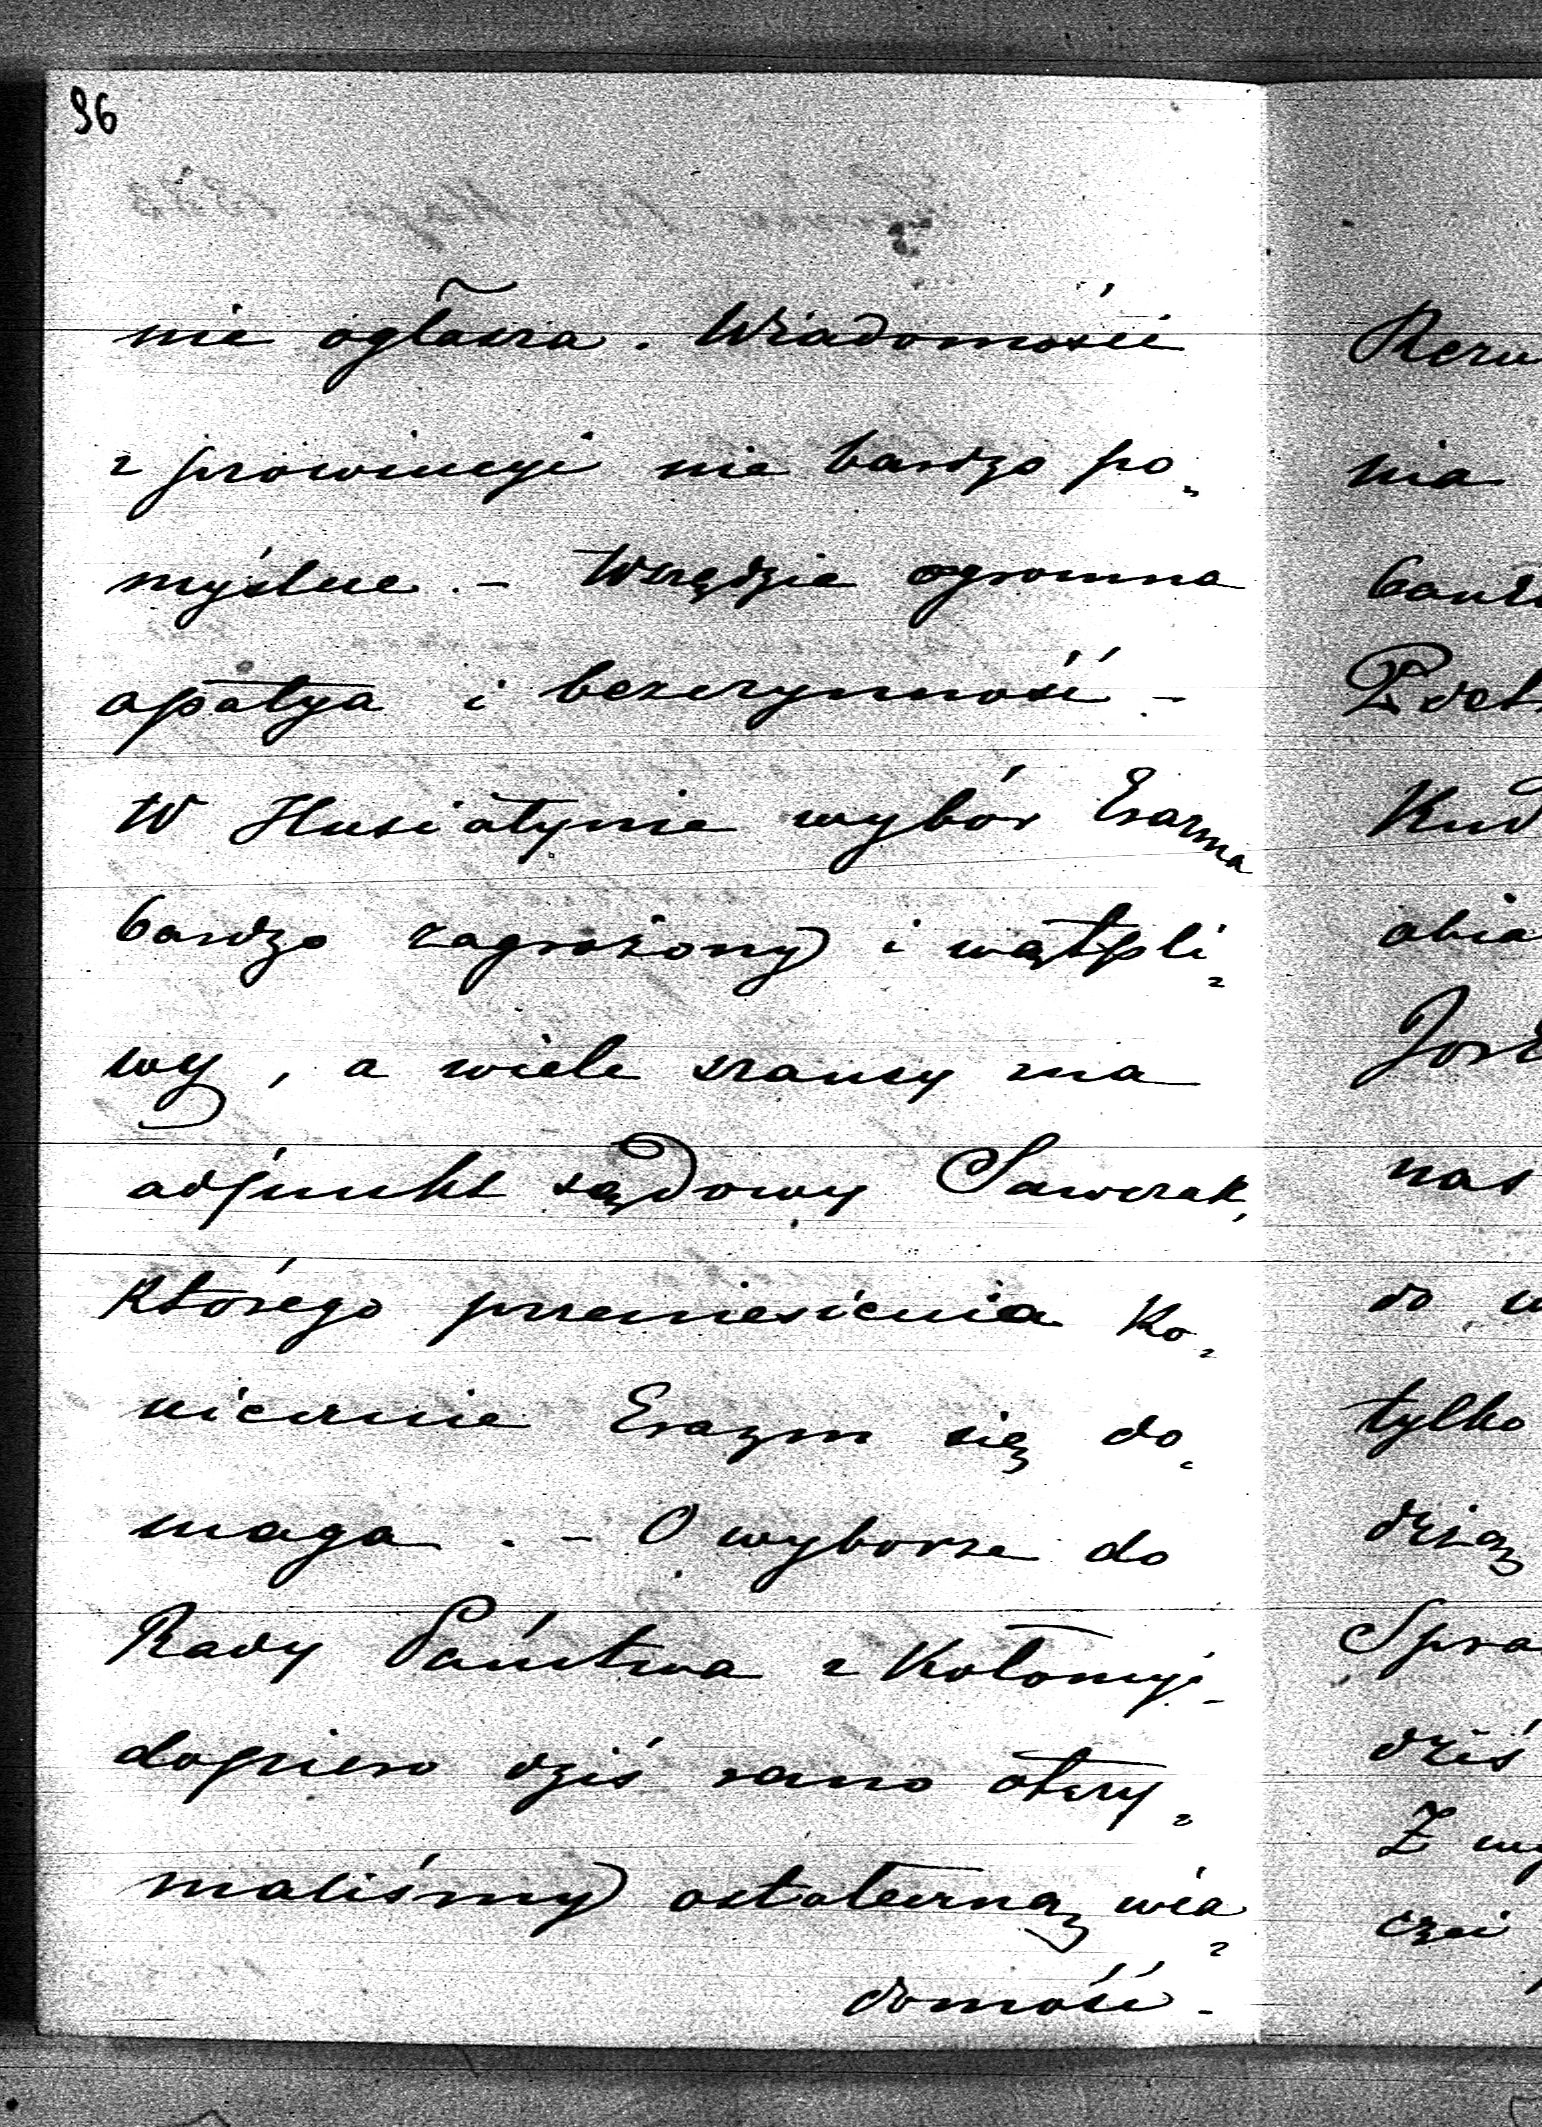 96
nie ogłasza. Wiadomości
z prowincyi nie bardzo po„
myślne. – Wszędzie ogromna
apatya i bezczynność –
W Husiatynie wybór Erazma
bardzo zagrożony i wątpli„
wy, a wiele szansy ma
adjunkt sądowy Sawczak,
którego przeniesienia ko„
niecznie Erazm się do„
maga. – O wyborze do
Rady Państwa z Kołomyi
dopiero dziś rano otrzy„
maliśmy ostateczną wia„
domość.
nia
nas
tylko
dziś